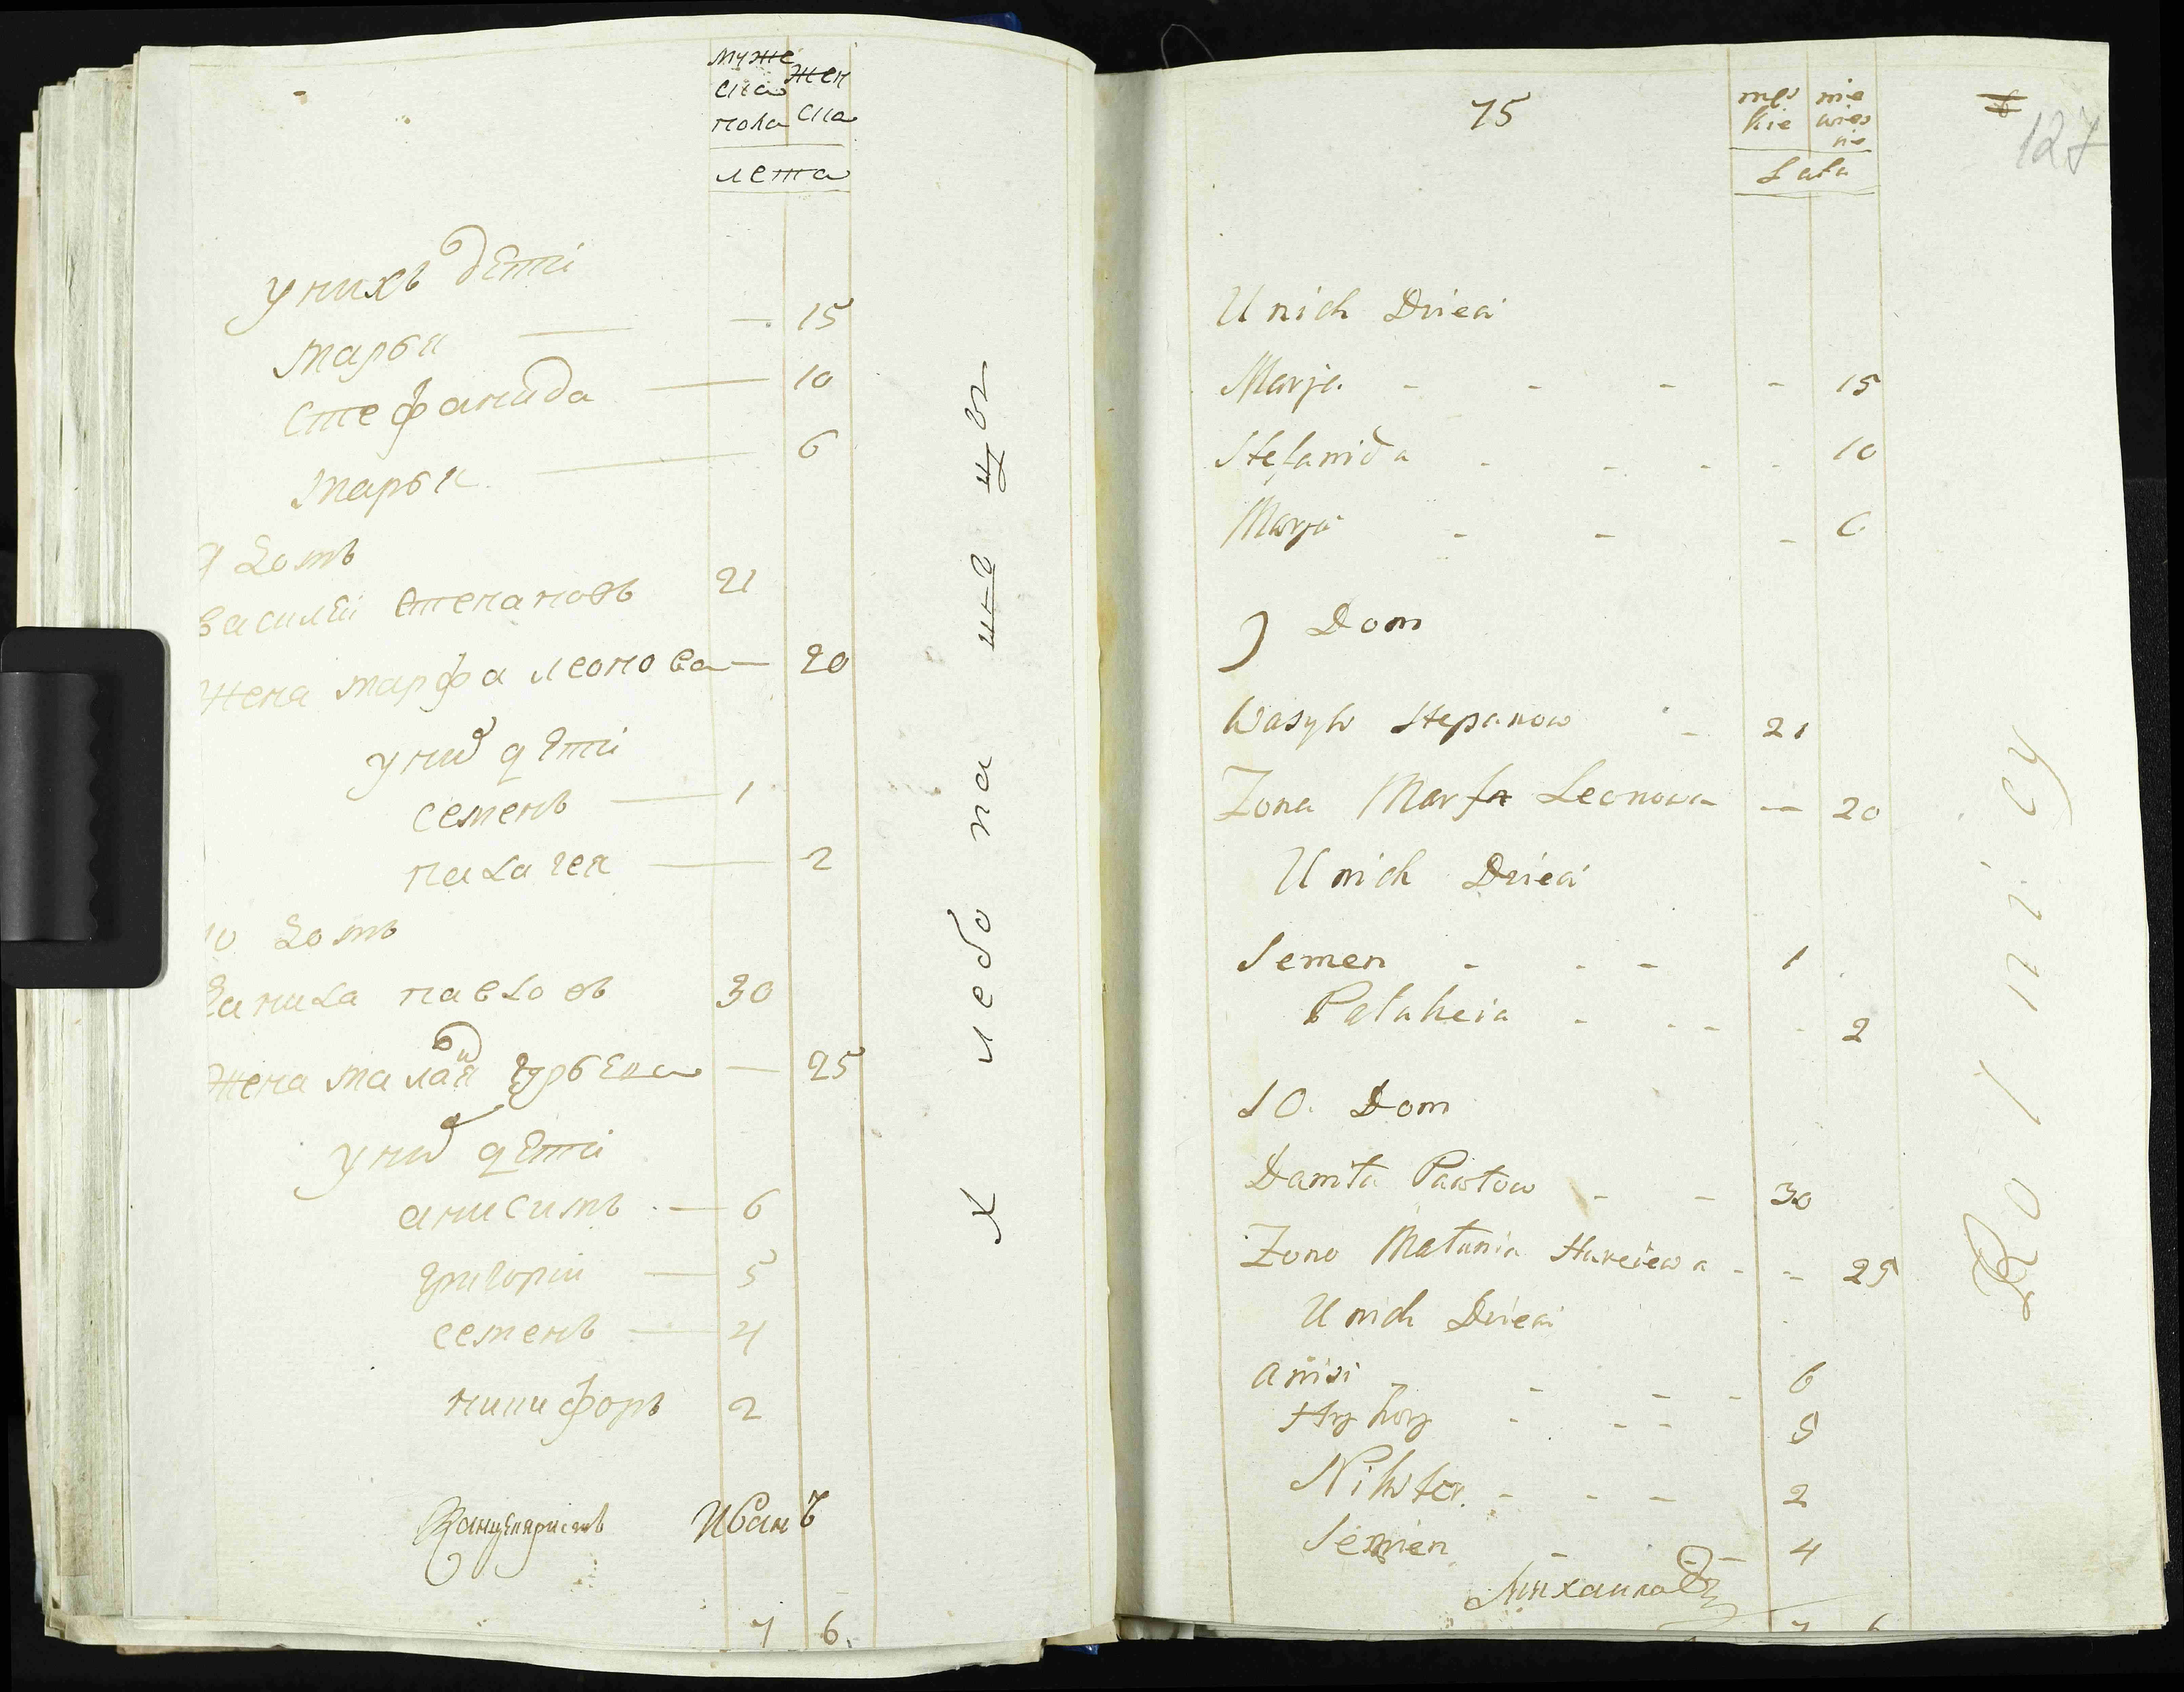 муже
ска
пола
жен
ска
лета
у нихъ дети
марья — 15
стефанида — 10
марья — 6
9 домъ
василеи степановъ 21
жена марфа леонова — 20
у них дети
семенъ — 1
палагея — 2
10 домъ
данила павловъ 30
жена маланя гурьева — 25
у них дети
анисимъ — 6
григории — 5
семенъ — 4
никифоръ 2
Канцеляристъ Иванъ
7 6
хлебопашцы
75
męs
kie
nie
wies
nie
Lata
127
U nich Dzieci
Marja - - - - 15
Stefanida - - - - 10
Marja - - - 6
9 Dom
Wasyl Stepanow - 21
Zona Marfa Leonowa — 20
U nich Dzieci
Semen - - - 1
Palaheia - - - - 2
10. Dom
Daniła Pawłow - - 30
Zona Małania - - 25
U nich Dzieci
Anisi - - - - 6
Hryhory - - - 5
Nikifor - - - 2
Semen - - - 4
Михаилов
7 6
Rolnicy